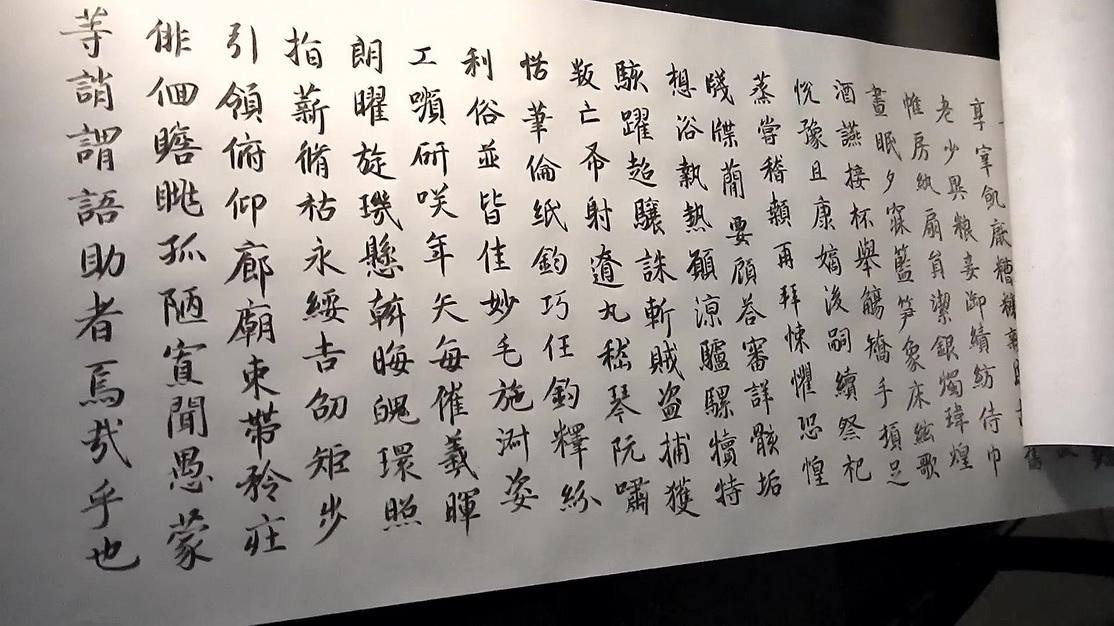 享宰飢厭糟糠親
老少異粮妾御績紡侍巾
惟房紈扇員潔銀燭瑋煌
晝眠夕寐籃笋象床絃歌
酒讌接杯舉觴矯手頓足
悅豫且康嫡後嗣續祭祀
蒸嘗稽顙再拜悚懼恐惶
牋牒蕳要顧答審詳骸垢
想浴執熱願涼驢騾犢特
駭躍超驤誅斬賊盜捕獲
叛亡布射遼丸嵇琴阮嘯
恬筆倫紙鈞巧任釣釋紛
利俗並皆佳妙毛施淑姿
工嚬研咲年矢每催羲暉
朗曜旋璣懸斡晦魄環照
指薪脩祜永綏吉劭矩步
引領俯仰廊廟束帶矜莊
俳佪瞻眺孤陋寡聞愚蒙
等誚謂語助者焉哉乎也